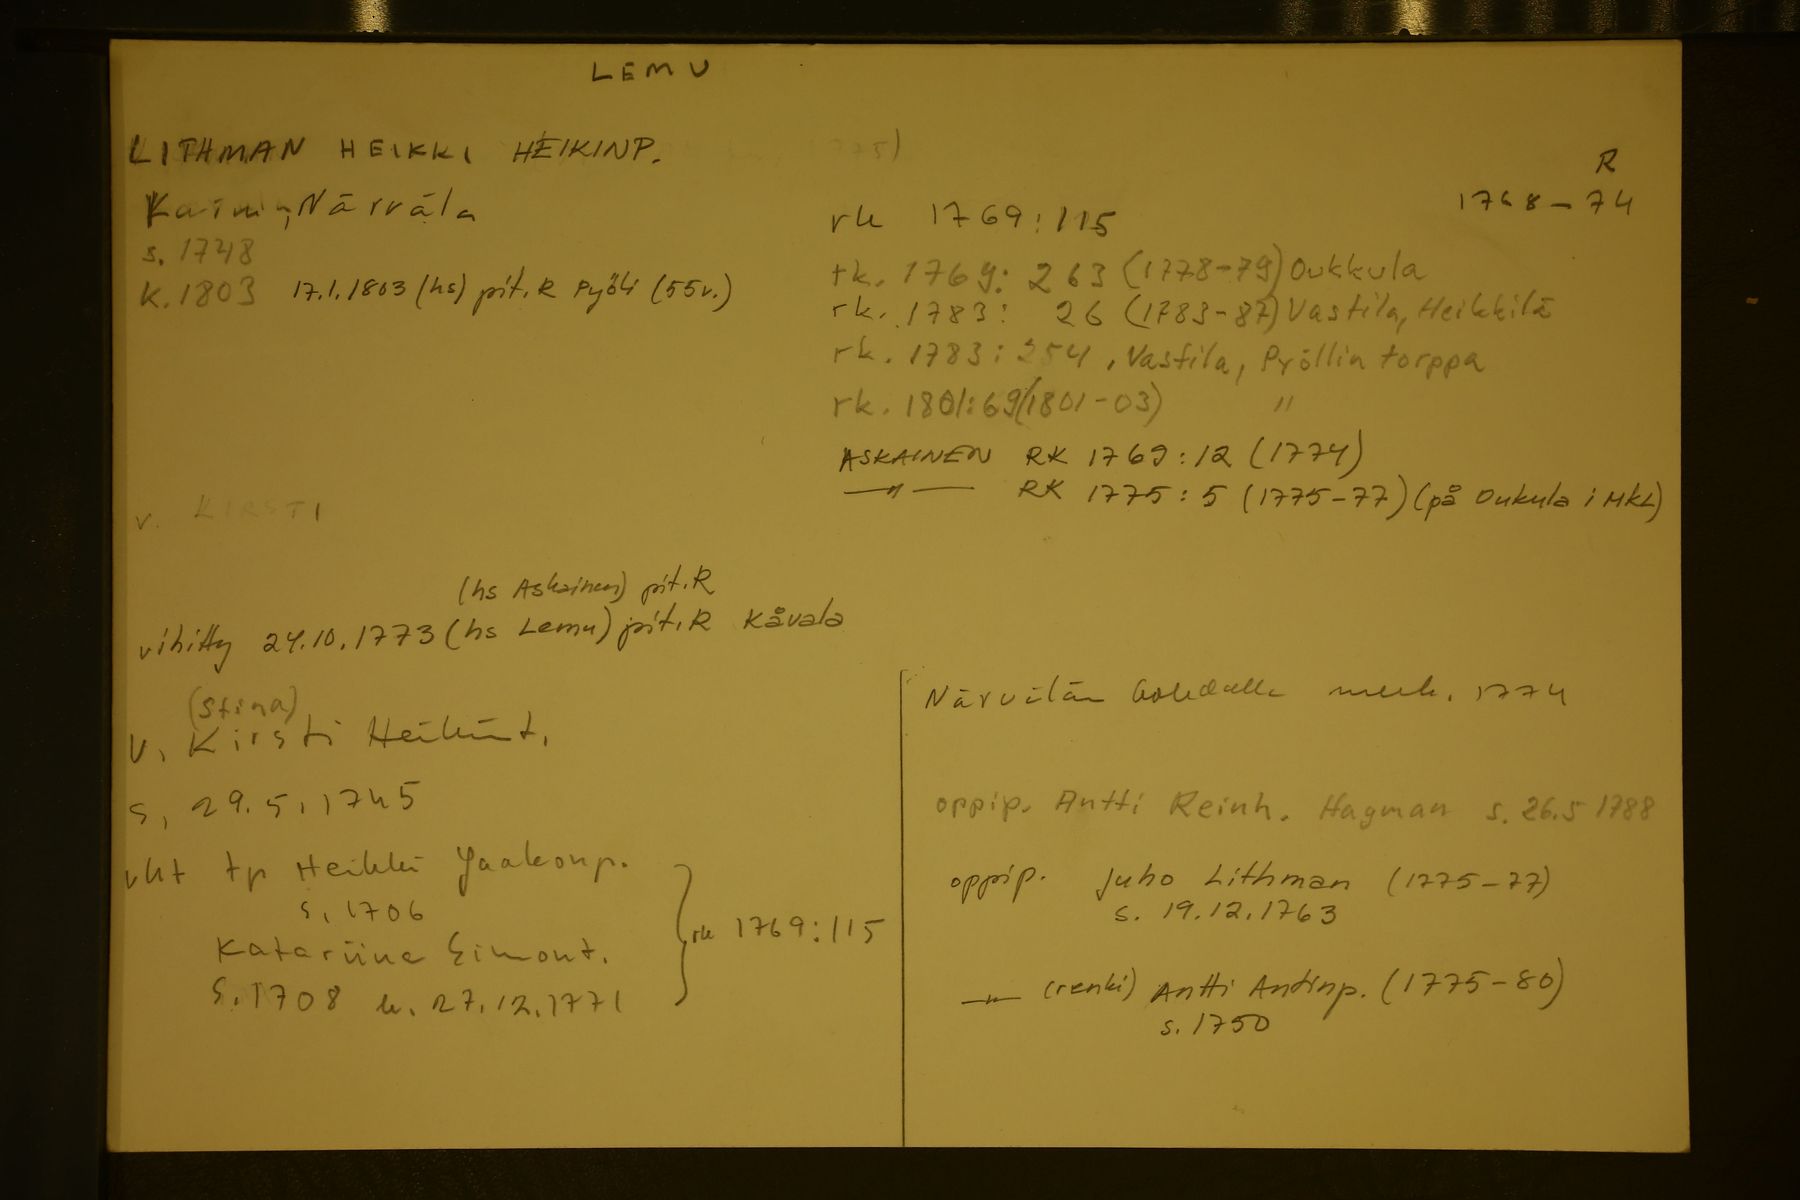 LEMU
LITHMAN HEIKKI HEIKINP.
R
1768-74
Närvälä
s. 1748
k. 1803 17.1.1803 (hs) pit.R Pyöli (55v.)
rk 1769:115
rk. 1769: 263 (1778-79) Oukkula
rk. 1783: 26 (1783-87) Vastila, Heikkilä
rk. 1783: 254, Vastila, Pyöllin torppa
rk. 1801:69 (1801-03) "
ASKAINEN RK 1769:12 (1774)
—"— RK 1775:5 (1775-77) (på Oukula i MKL)
v. KIRSTI
(hs Askainen) pit.R
vihitty 24.10.1773 (hs Lemu) pit.R Kåvala
(Stina)
v. Kirsti Heikint.
s. 29.5.1745
vht tp Heikki Jaakonp.
s. 1706
Katariina Simont.
s. 1708 k. 27.12.1771
rk 1769:115
Närvälän kohdalla merk. 1774
oppip. Antti Reinh. Hagman s. 26.5 1788
oppip. Juho Lithman (1775-77)
s. 19.12.1763
—"— (renki) Antti Antinp. (1775-80)
s. 1750